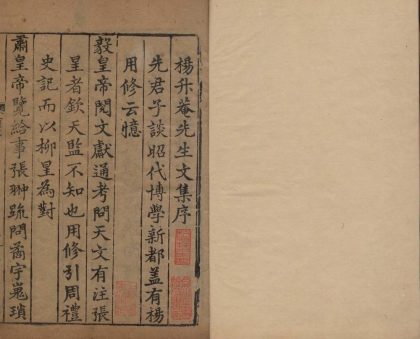 楊升菴先生文集序
先君子談昭代博學新都蓋有楊
用修云憶
毅皇帝閱文獻通考問天文有注張
星者欽天監不知也用修引周禮
史記而以柳星為對
肅皇帝覽給事張翀䟽問喬宇嵬瑣